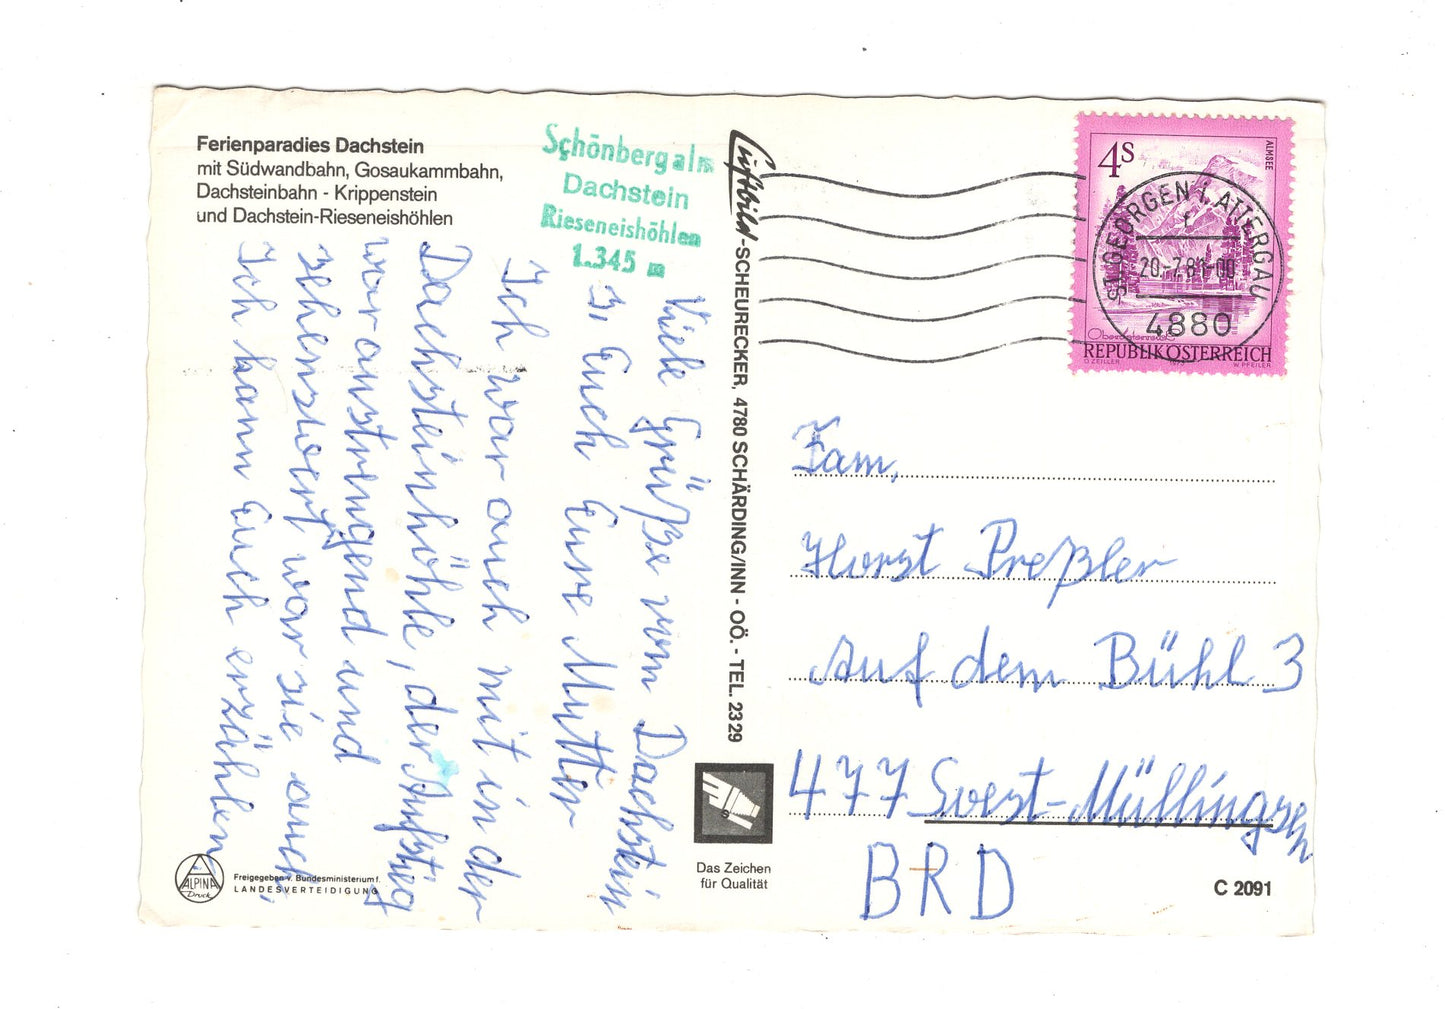 Ferienparadies Dachstein
mit Südwandbahn, Gosaukammbahn,
Dachsteinbahn - Krippenstein
und Dachstein-Rieseneishöhlen
Schönbergalm
Dachstein
Rieseneishöhlen
1.345 m
Viele Grüße vom Dachstein
Euch Eure Mutter
Ich war auch mit in der
Dachsteinhöhle, der Aufstieg
war anstrengend und
sehenswert war sie auch
Ich kann Euch erzählen
ALPINA
Druck
Freigegeben v. Bundesministerium f.
LANDESVERTEIDIGUNG
Luftbild-SCHEURECKER, 4780 SCHÄRDING/INN - OÖ. - TEL. 2329
Das Zeichen
für Qualität
4S
ALMSEE
ST. GEORGEN I. ATTERGAU
f
20.-7.81-00
4880
Oberösterreich
REPUBLIK ÖSTERREICH
O. ZEILLER
1973
W. PFEILER
Fam,
Horst Preßler
Auf dem Bühl 3
477 Soest-Müllingsen
BRD
C 2091